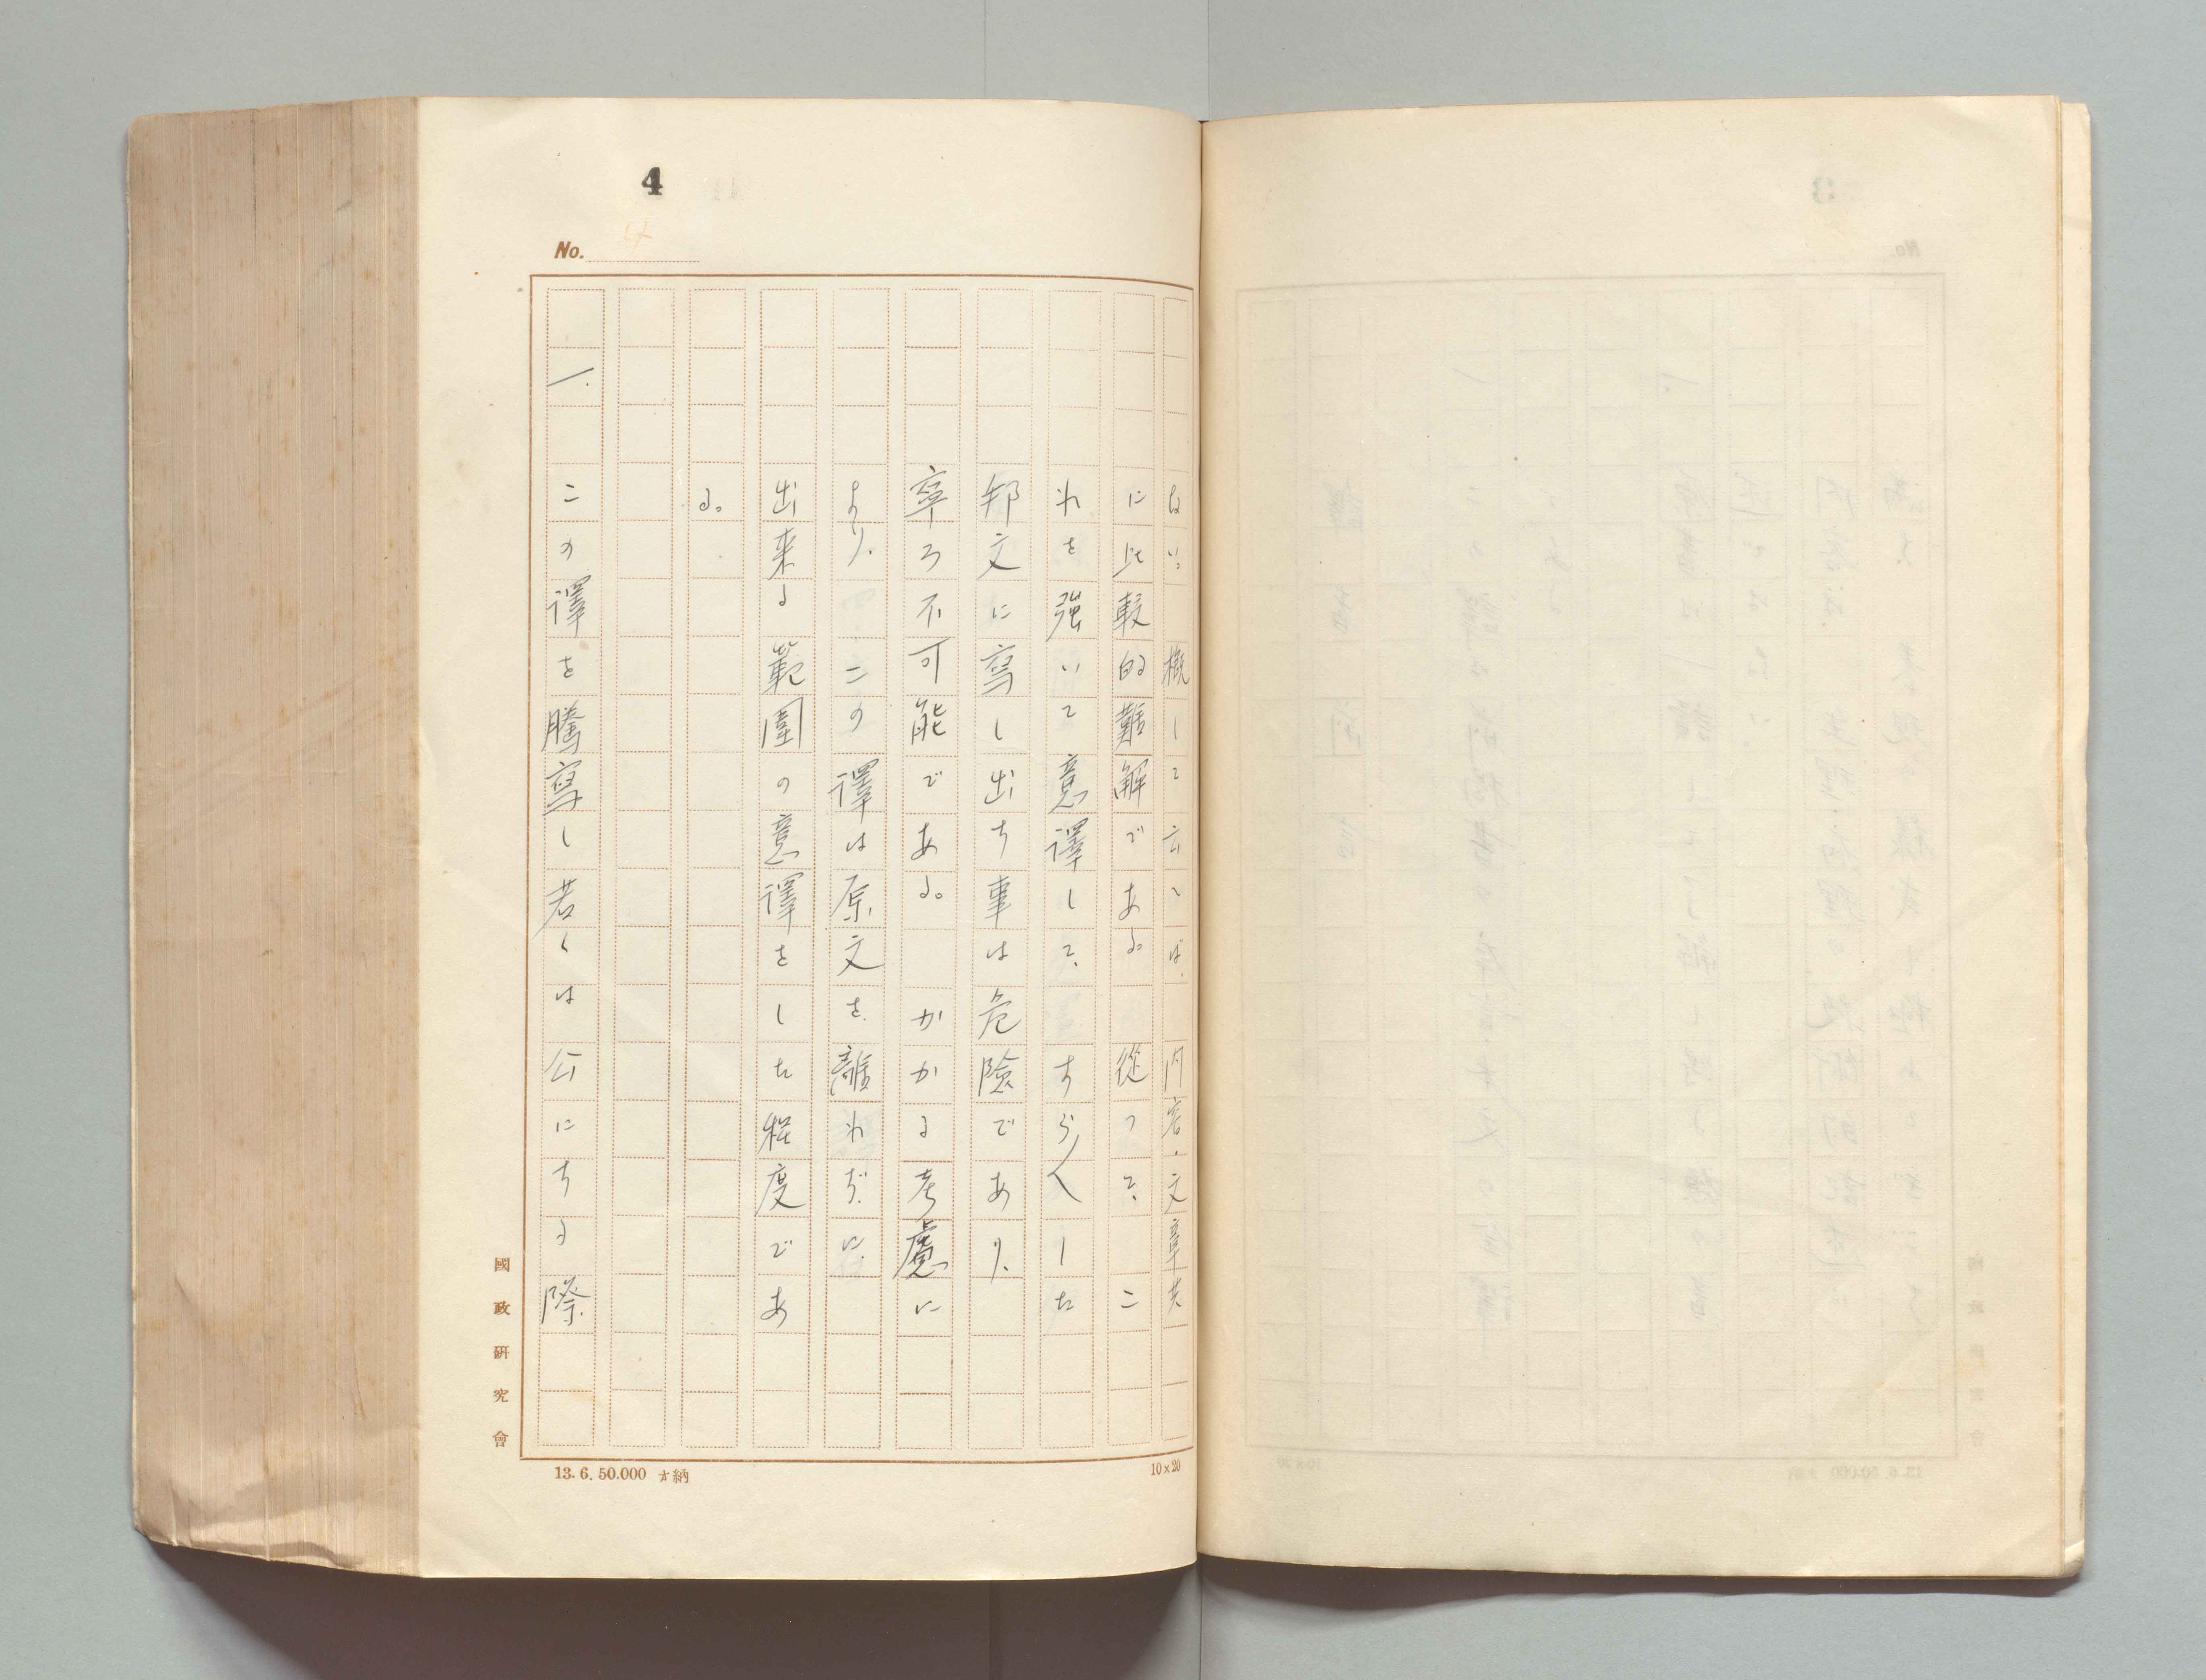 4
No. 4
ない。 概して云へば、 内容・文章共
に比較的難解である。 從つて、 こ
れを強いて意譯して、 すらくした
邦文に寫し出す事は危險であり、
寧ろ不可能である。 かかる考慮に
より、 この譯は原文を離れずに、
出來る範圍の意譯をした程度であ
る。
一. この譯を騰寫し若くは公にする際
國政研究會
13.6.50.000 才納
10×20